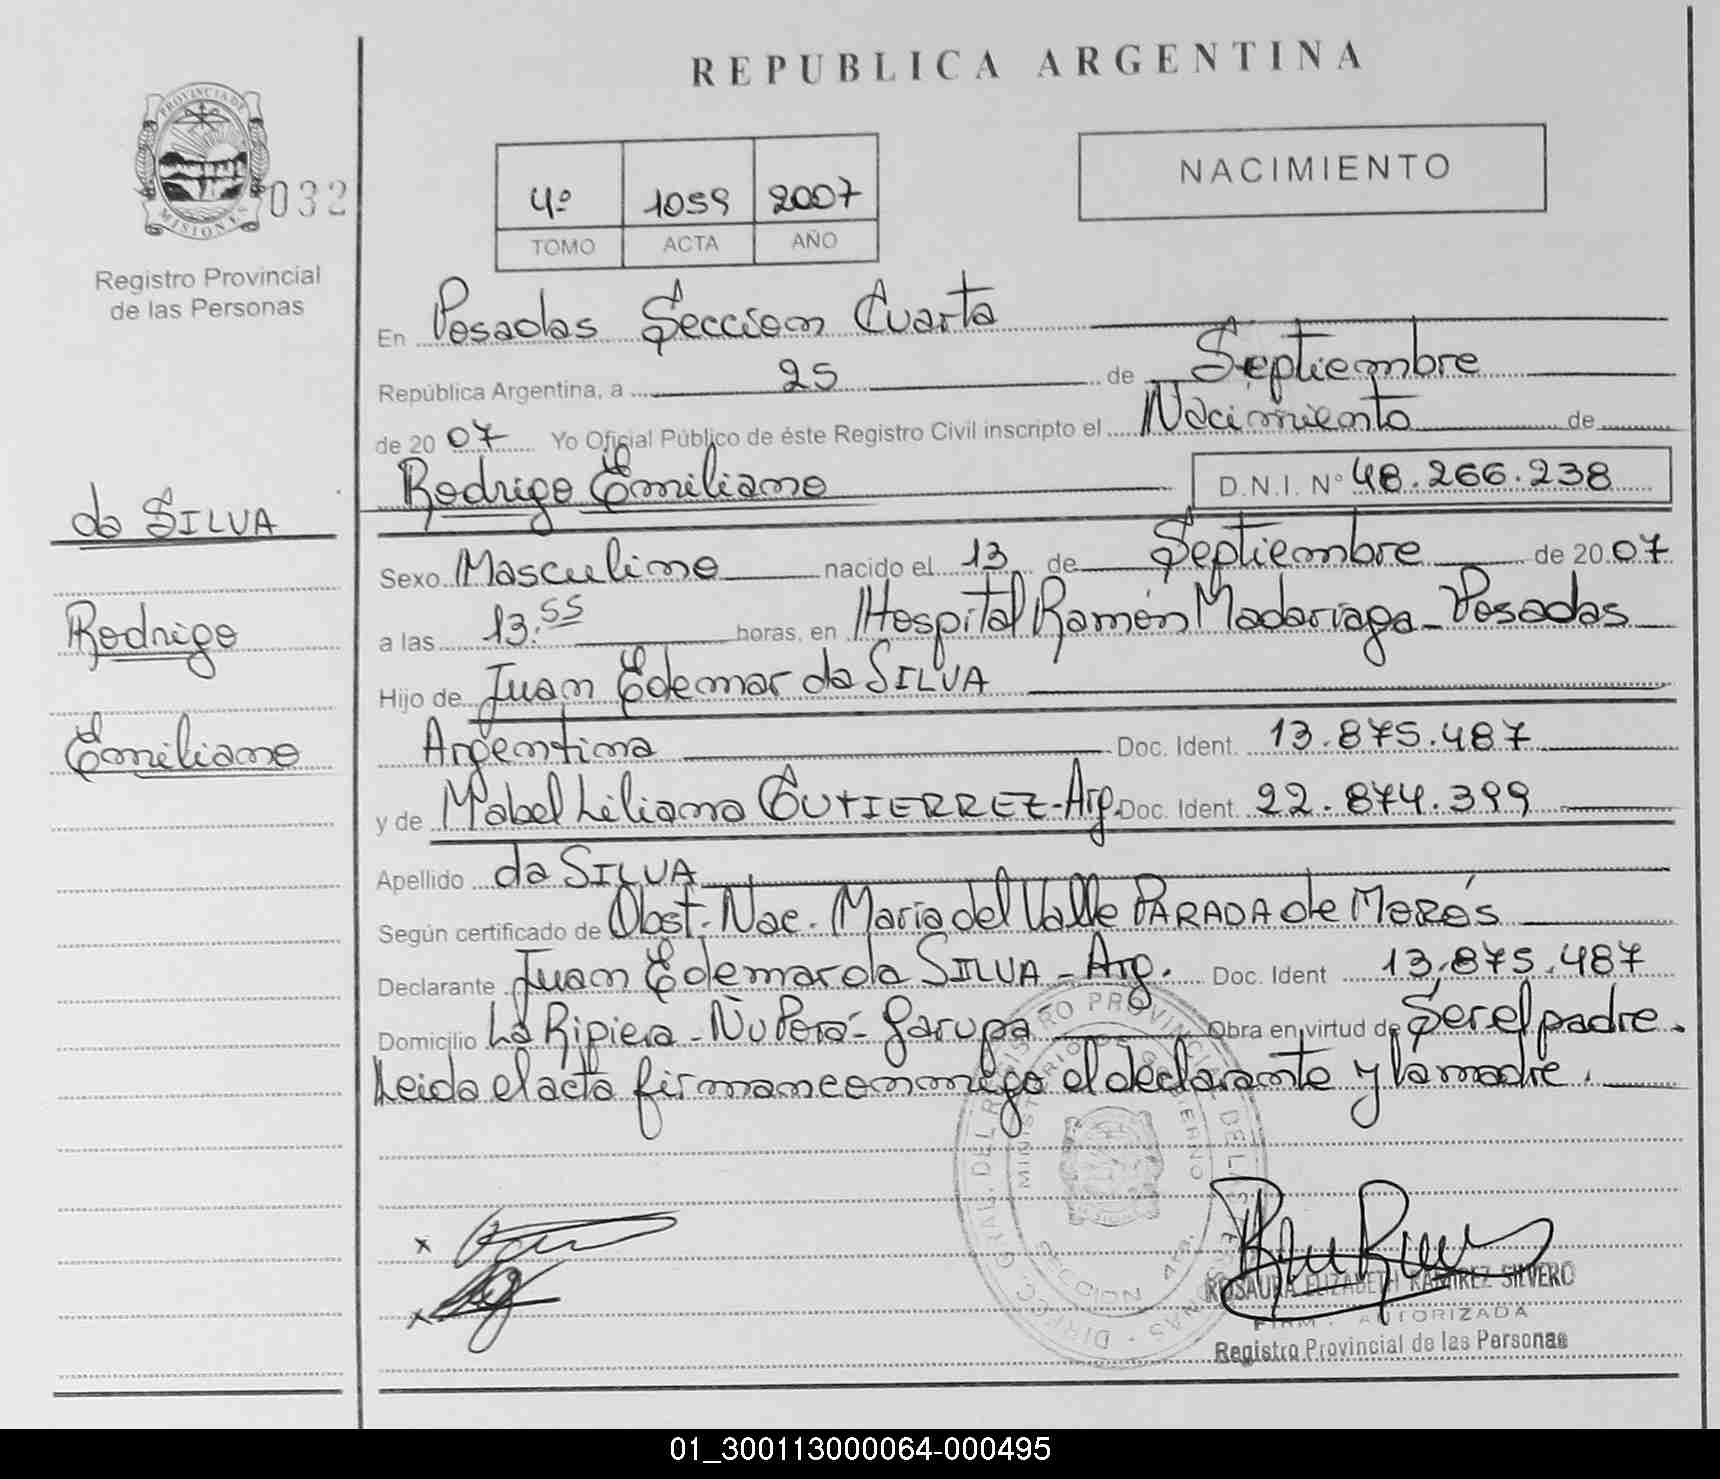 REPUBLICA ARGENTINA
PROVINCIA DE
MISIONES
032
Registro Provincial
de las Personas
4º 1059 2007
TOMO ACTA AÑO
NACIMIENTO
En Posadas Seccion Cuarta
República Argentina, a 25 de Septiembre
de 2007 Yo Oficial Público de éste Registro Civil inscripto el Nacimiento de
Rodrigo Emiliano D.N.I. Nº 48.266.238
da SILVA
Rodrigo
Emiliano
Sexo Masculino nacido el 13 de Septiembre de 2007
a las 13.55 horas, en Hospital Ramón Madariaga - Posadas
Hijo de Juan Edemar da SILVA
Argentina Doc. Ident. 13.875.487
y de Mabel Liliana GUTIERREZ - Arg. Doc. Ident. 22.874.399
Apellido da SILVA
Según certificado de Obst. Nac. Maria del Valle PARADA de
Declarante Juan Edemar da SILVA - Arg. Doc. Ident 13.875.487
Domicilio La Ripiera - Ñu Porá - Garupa Obra en virtud de Ser el padre.
Leida el acta firman conmigo el declarante y la madre.
x
x
ROSAURA ELIZABETH RAMIREZ SILVERO
FIRMA AUTORIZADA
Registro Provincial de las Personas
01_300113000064-000495